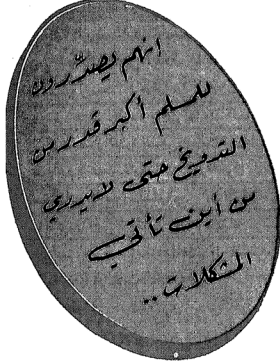 انهم يصدّرون
للمسلم أكبر قدر من
التدويخ حتى لا يدري
من أين تأتي
المشكلات ..